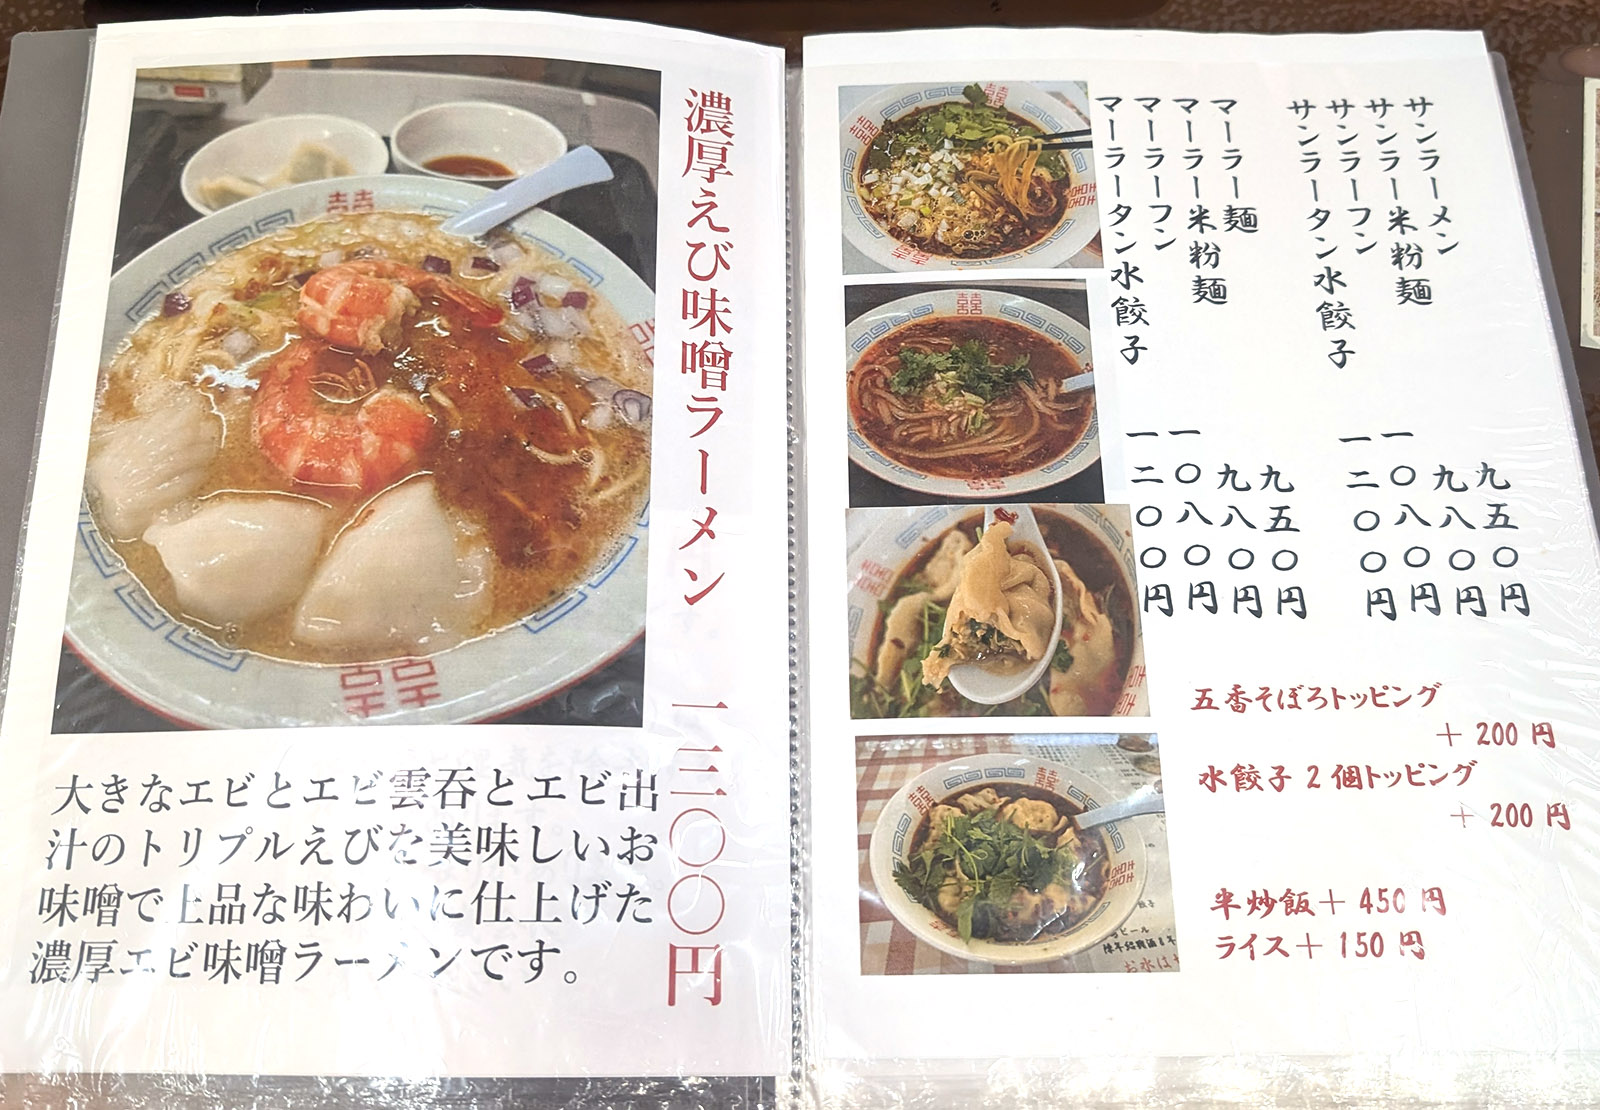 濃厚えび味噌ラーメン 一三〇〇円
大きなエビとエビ雲吞とエビ出
汁のトリプルえびを美味しいお
味噌で上品な味わいに仕上げた
濃厚エビ味噌ラーメンです。
サンラーメン 九五〇円
サンラー米粉麺 九八〇円
サンラーフン 一〇八〇円
サンラータン水餃子 一二〇〇円
マーラー麺 九五〇円
マーラー米粉麺 九八〇円
マーラーフン 一〇八〇円
マーラータン水餃子 一二〇〇円
五香そぼろトッピング
＋200円
水餃子2個トッピング
＋200円
半炒飯＋450円
ライス＋150円
餃子
お水は